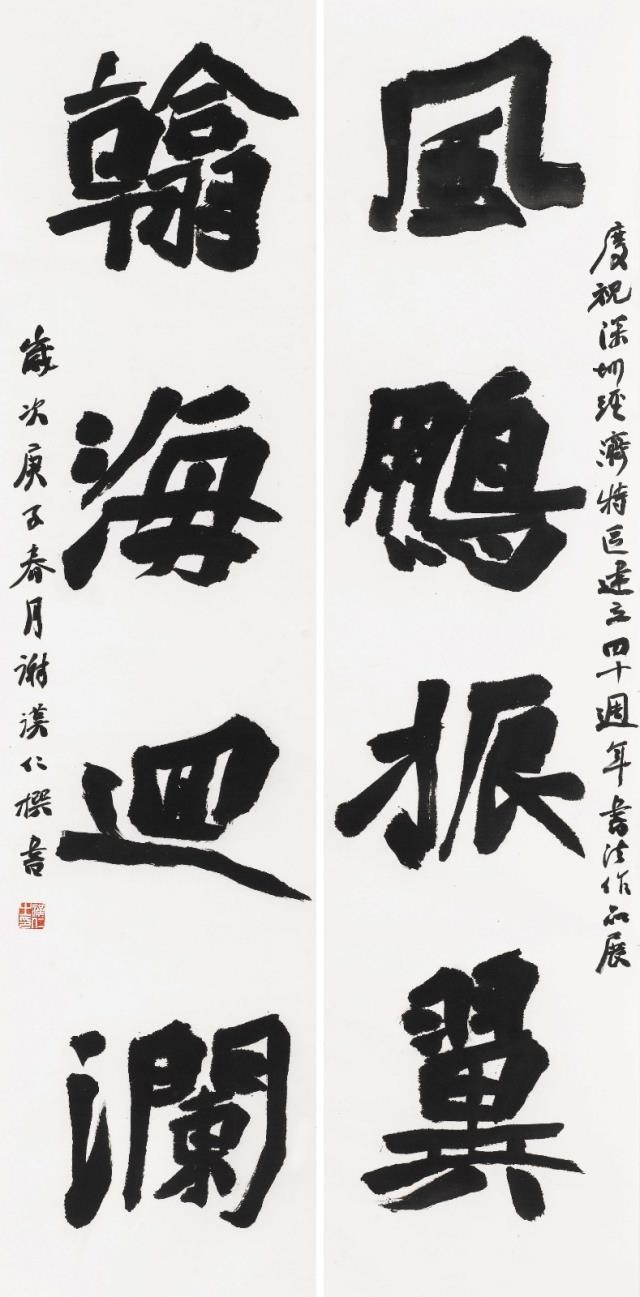 慶祝深圳經濟特區建立四十週年書法作品展
風鵬振翼
翰海迴瀾
歲次庚子春月謝漢仁撰書